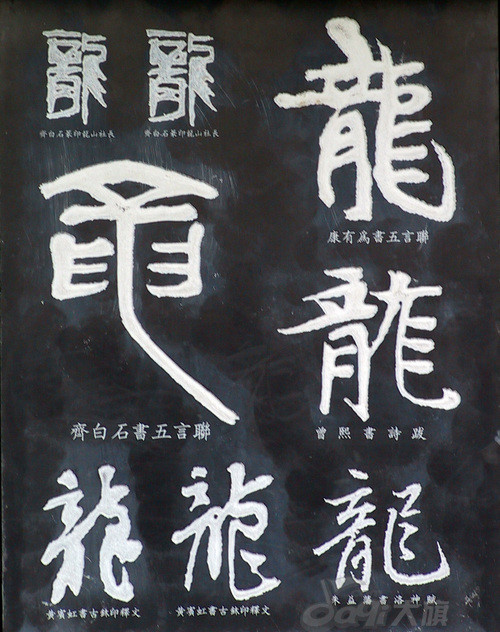 龍 龍
齊白石篆印龍山社長 齊白石篆印龍山社長
龍
康有爲書五言聯
龍
齊白石書五言聯
龍
曾熙書詩跋
龍
黃賓虹書古鉥印釋文
龍
黃賓虹書古鉥印釋文
龍
朱益藩書洛神賦
大旗